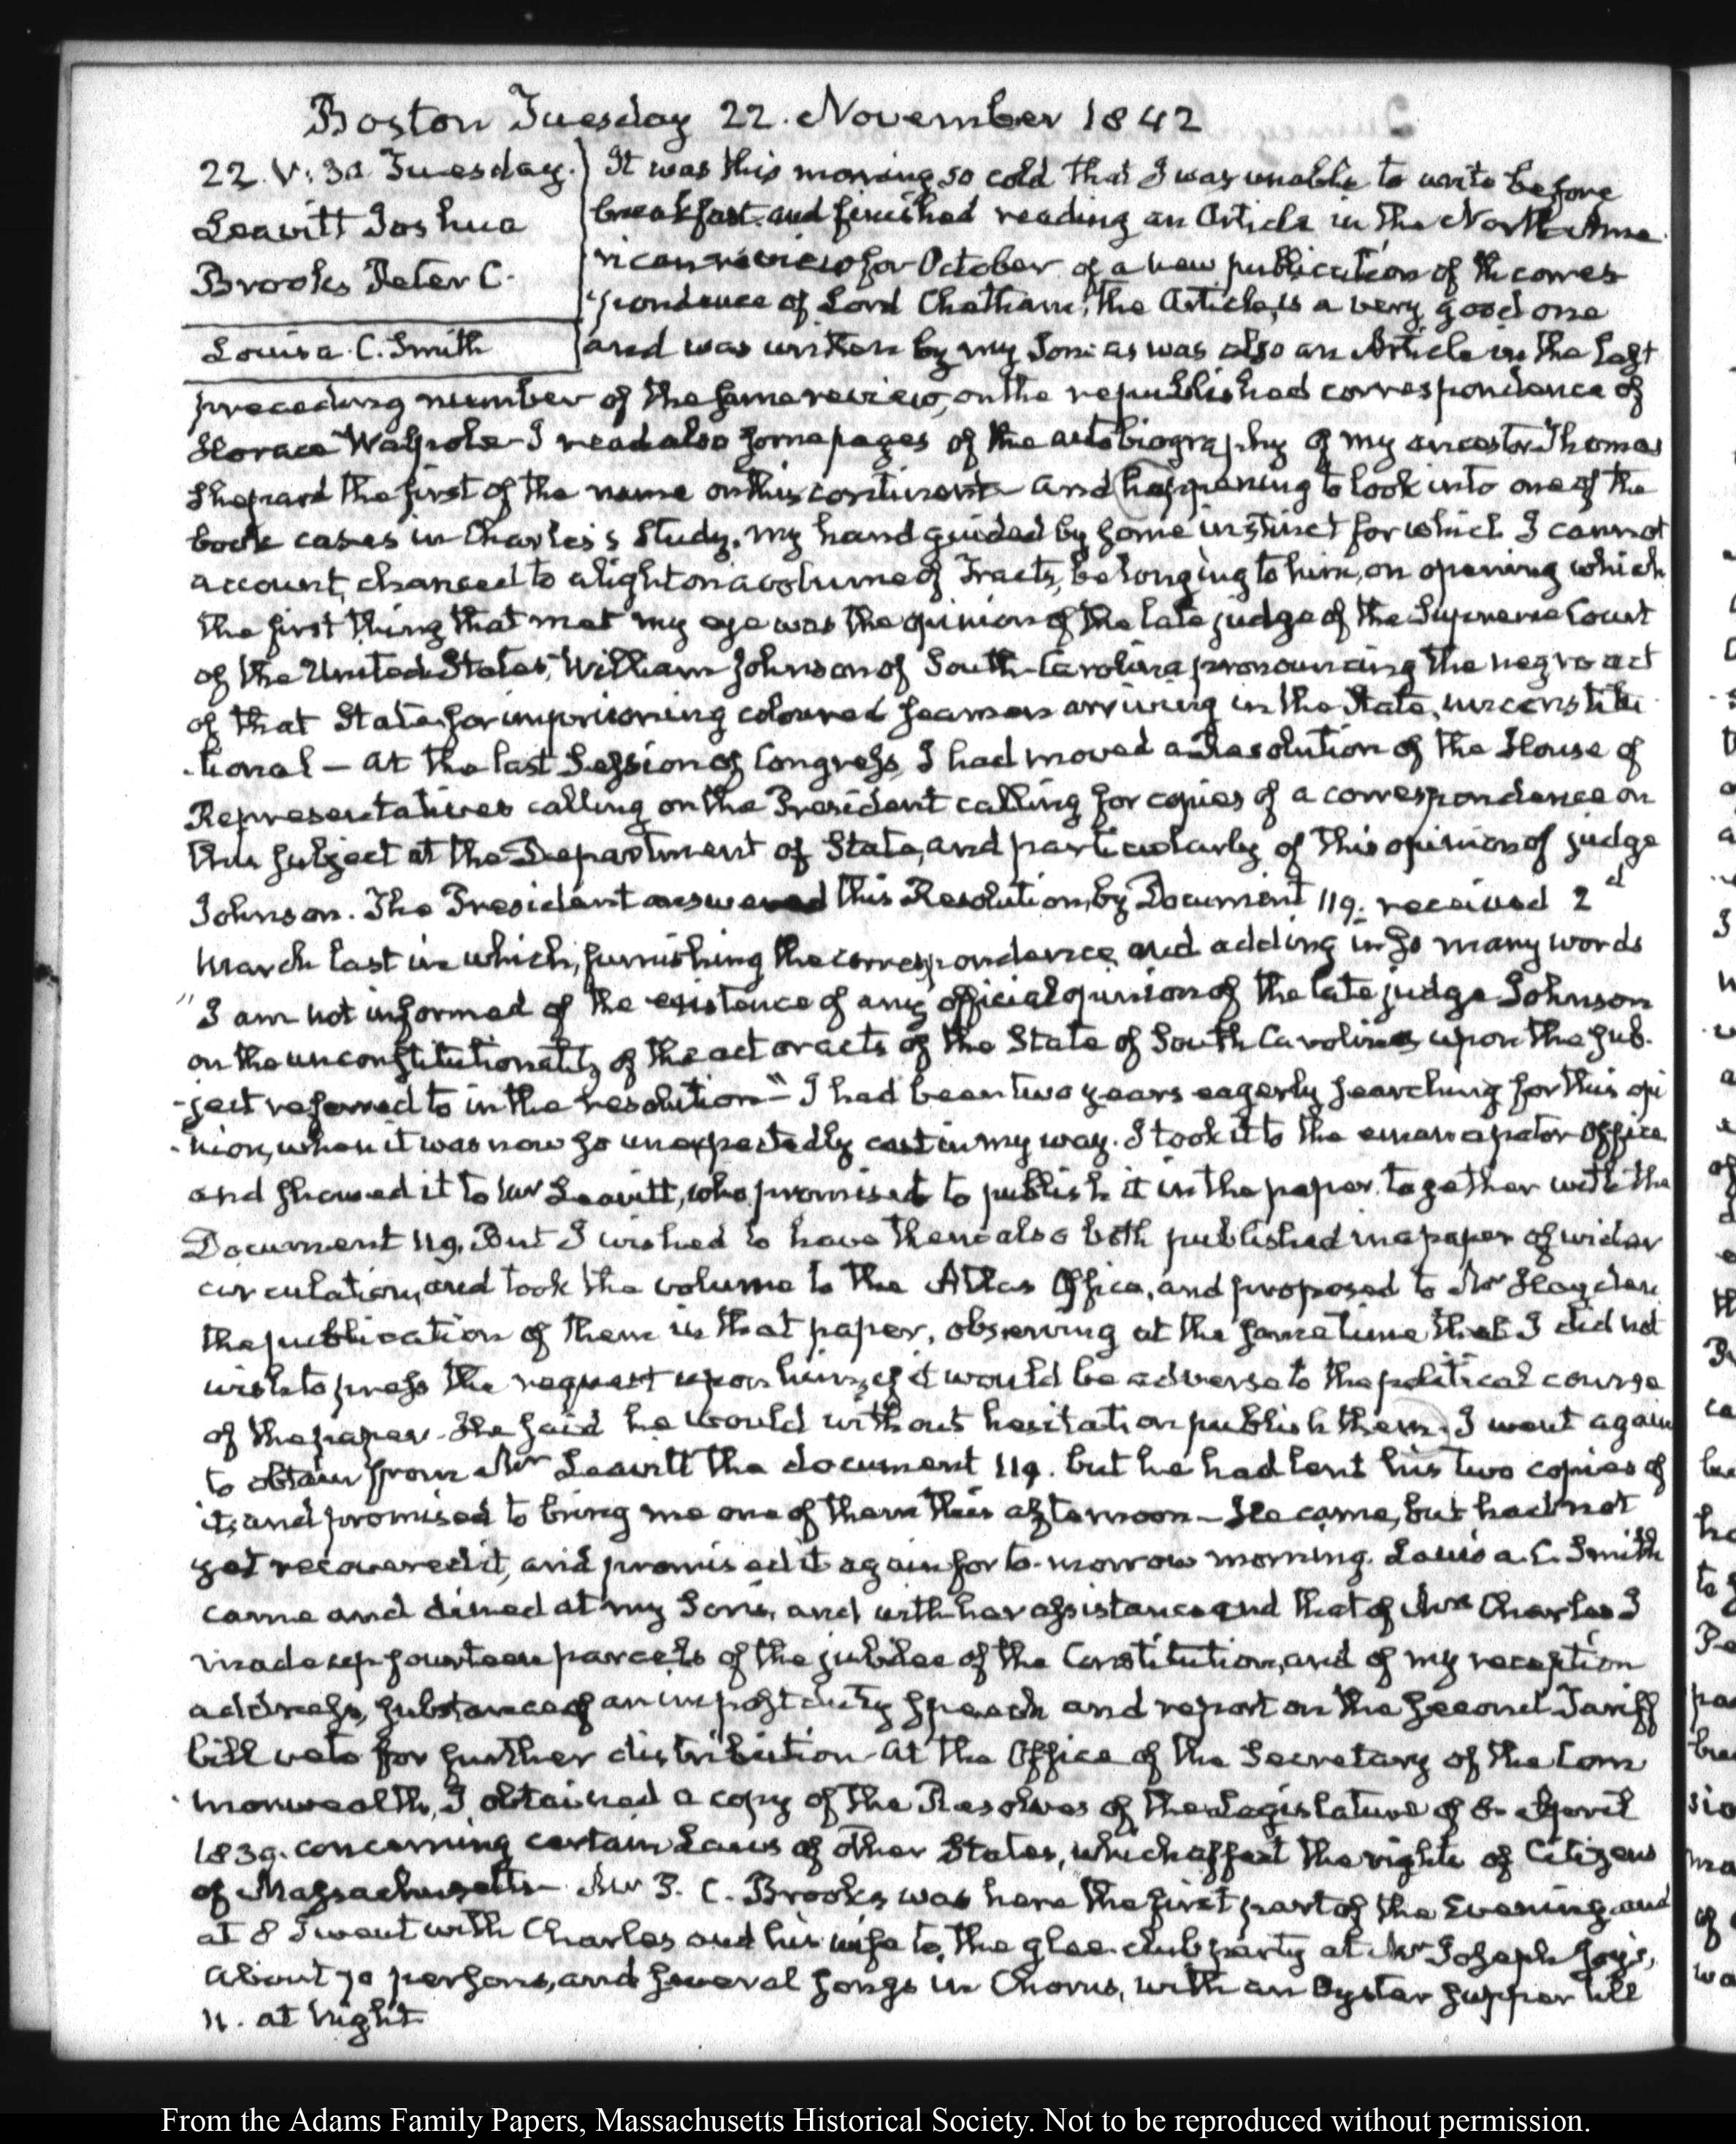 Boston Tuesday 22. November 1842
22. V: 30 Tuesday.
Leavitt Joshua
Brooks Peter C.
Louisa. C. Smith
It was this morning so cold that I was unable to write before
breakfast and finished reading an Article in the North Ame
rican review for October of a new publication of the corres
pondence of Lord Chatham; the Article, is a very good one
and was written by my Son: as was also an Article in the last
preceding number of the same review, on the republished correspondence of
Horace Walpole - I read also some pages of the autobiography of my ancestor Thomas
Shepard the first of the name on this continent - and happening to look into one of the
book cases in Charles's Study, my hand guided by some instinct for which I cannot
account, chanced to alight on a volume of Tracts, belonging to him, on opening which
the first thing that met my eye was the opinion of the late judge of the Supreme Court
of the United States, William Johnson of South-Carolina pronouncing the negro act
of that State for imprisoning coloured seamen arriving in the State, unconstitu
tional - At the last Session of Congress, I had moved a Resolution of the House of
Representatives calling on the President calling for copies of a correspondence on
this subject at the Department of State, and particularly of this opinion of judge
Johnson. The President answered this Resolution, by Document 119. received 2d
March last in which, furnishing the correspondence, and adding in so many words
"I am not informed of the existence of any official opinion of the late judge Johnson
on the unconstitutionality of the act or acts of the State of South Carolina, upon the sub-
-ject referred to in the resolution" - I had been two years eagerly searching for this opi
nion, when it was now so unexpectedly cast in my way. I took it to the emancipator Office
and showed it to Mr Leavitt, who promised to publish it in the paper, together with the
Document 119. But I wished to have them also both published in a paper of wider
circulation, and took the volume to the Atlas Office, and proposed to Mr Hayden
the publication of them in that paper, observing at the same time that I did not
wish to press the request upon him, if it would be adverse to the political course
of the paper. He said he would without hesitation publish them. I went again
to obtain from Mr Leavitt the document 119. but he had lent his two copies of
it, and promised to bring me one of them this afternoon - He came, but had not
yet recovered it, and promised it again for to-morrow morning. Louisa. C. Smith
came and dined at my Son's, and with her assistance and that of Mrs Charles I
made up fourteen parcels of the jubilee of the Constitution, and of my reception
address, substance of an impost duty speech and report on the second Tariff
bill veto for further distribution - At the Office of the Secretary of the Com
monwealth, I obtained a copy of the Resolves of the Legislature of 8. April
1839. concerning certain Laws of other States, which affect the rights of Citizens
of Massachusetts - Mr P. C. Brooks was here the first part of the Evening, and
at 8 I went with Charles and his wife to, the glee-club party at Mr Joseph Joy's,
about 70 persons, and several songs in Chorus, with an Oyster supper till
11. at Night
From the Adams Family Papers, Massachusetts Historical Society. Not to be reproduced without permission.